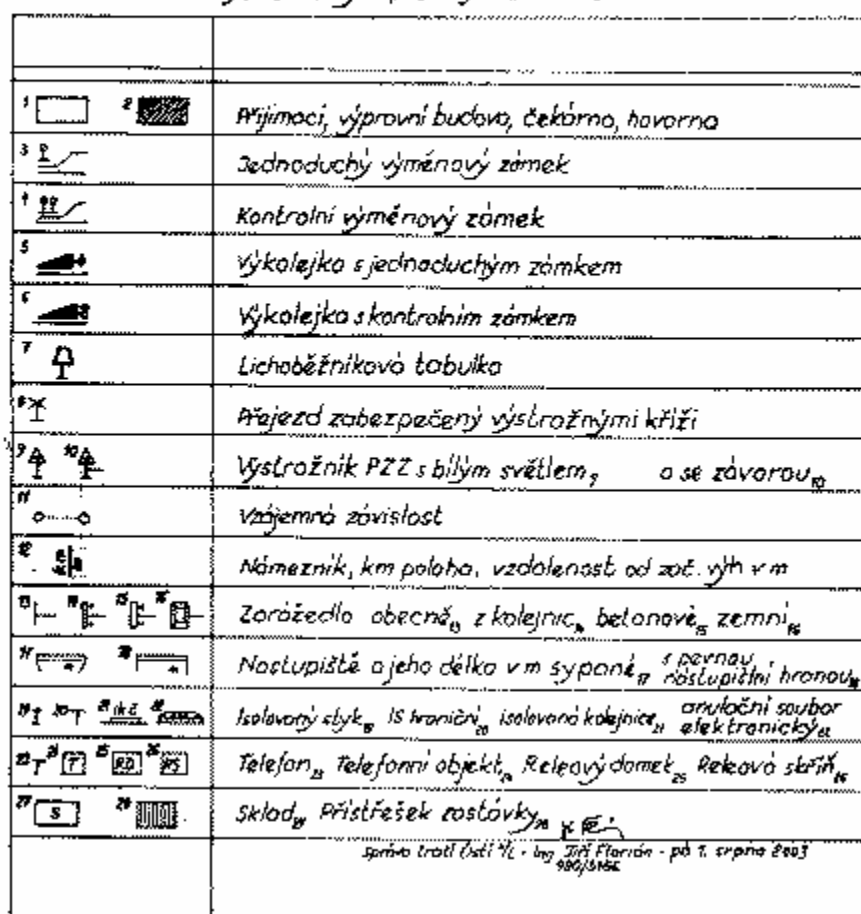 1 2 Přijímací, výpravní budova, čekárna, hovorna
3 Jednoduchý výměnový zámek
4 Kontrolní výměnový zámek
5 Výkolejka s jednoduchým zámkem
6 Výkolejka s kontrolním zámkem
7 Lichoběžníková tabulka
8 Přejezd zabezpečený výstražnými kříži
9 10 Výstražník PZZ s bílým světlem 9 a se závorou 10
11 Vzájemná závislost
12 Námezník, km poloha, vzdálenost od zač. výh v m
13 14 15 16 Zarážedlo obecně 13 z kolejnic 14 betonové 15 zemní 16
17 18 Nástupiště a jeho délka v m sypané 17 s pevnou nástupištní hranou 18
19 20 21 ik č 22 Isolovaný styk 19 IS hraniční 20 isolovaná kolejnice 21 anulační soubor elektronický 22
23 24 T 25 RD 26 RS Telefon 23 Telefonní objekt 24 Releový domek 25 Releová skříň 26
27 S 28 Sklad 27 Přístřešek zastávky 28
Správa tratí Ústí n/L - Ing Jiří Florián - pd 1. srpna 2003